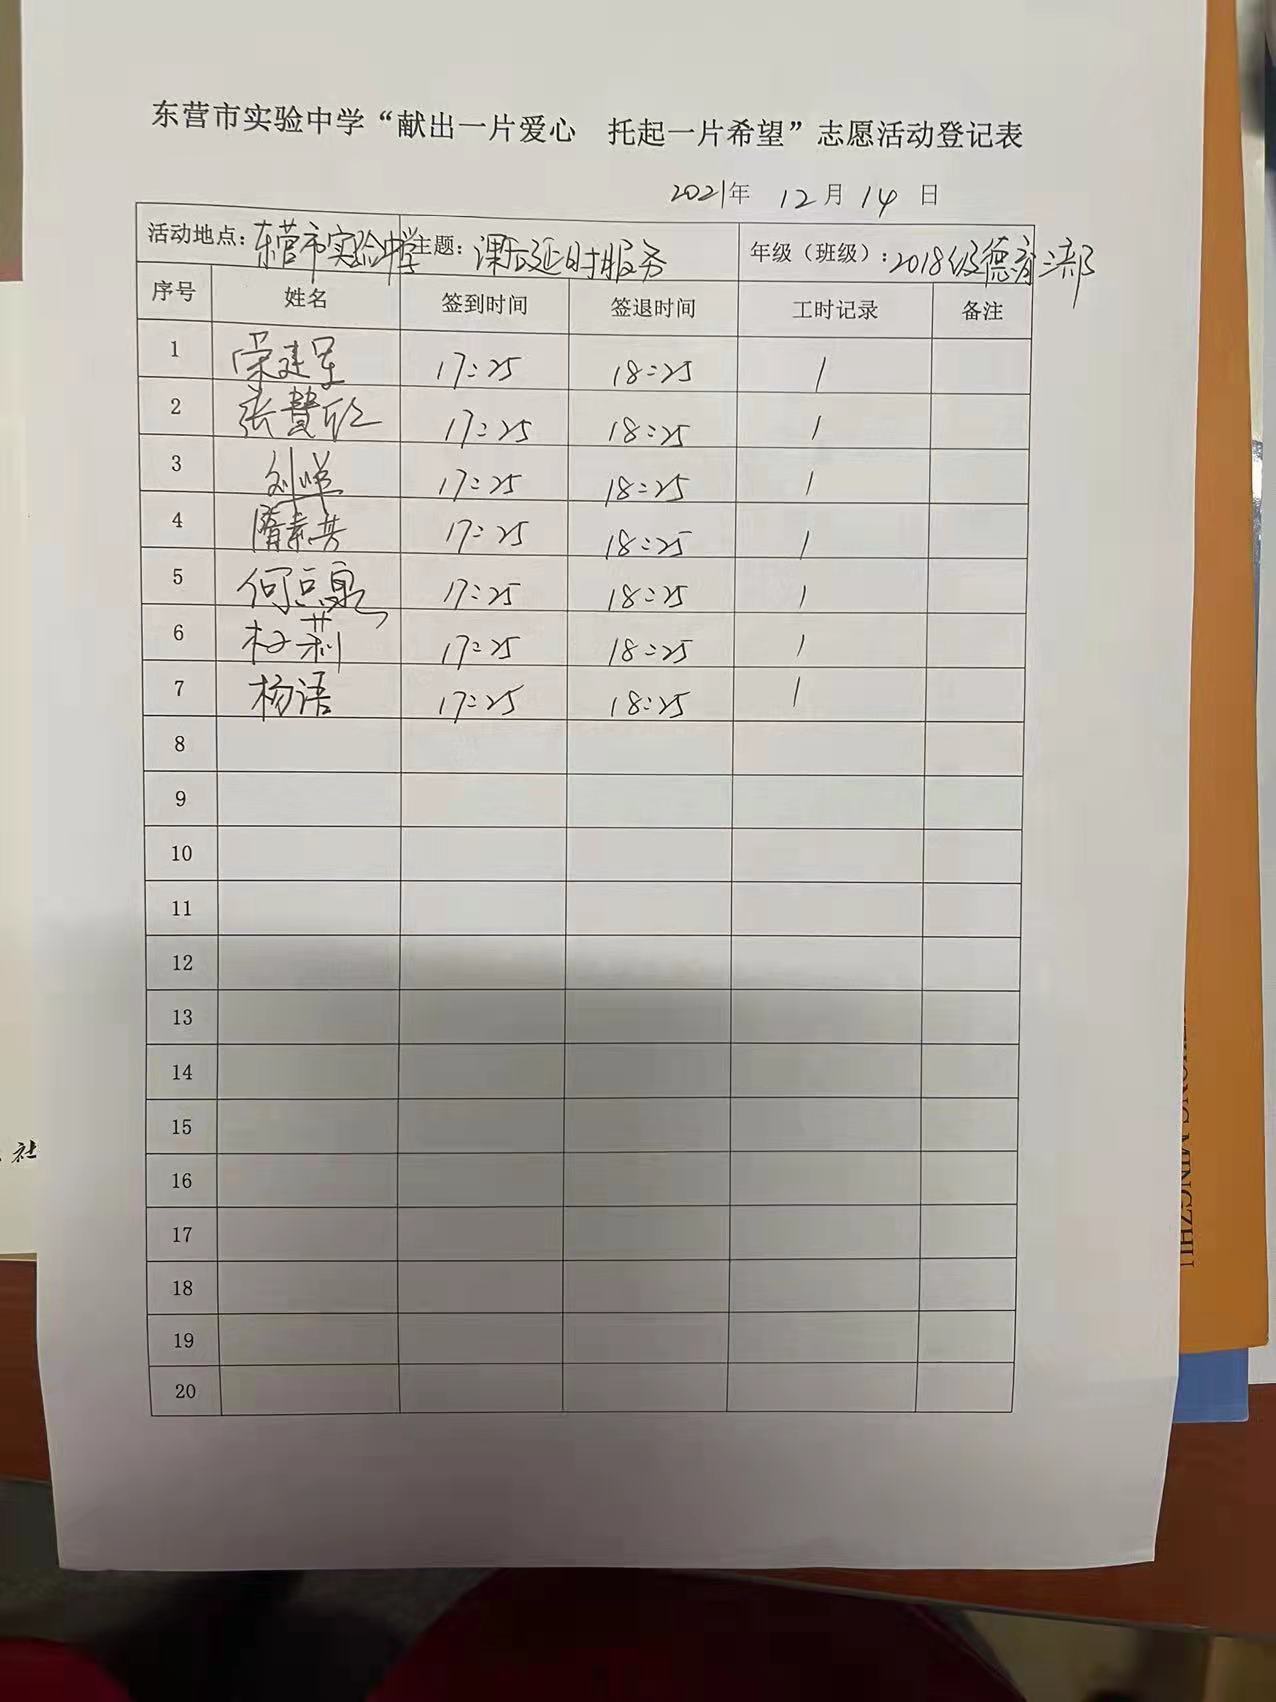 东营市实验中学“献出一片爱心 托起一片希望”志愿活动登记表
2021年 12月14日
活动地点：东营市实验中学 主题：课后延时服务 年级（班级）：2018级德育三部
序号 姓名 签到时间 签退时间 工时记录 备注
1 荣建军 17:25 18:25 1
2 张慧欣 17:25 18:25 1
3 刘悦 17:25 18:25 1
4 隋素芸 17:25 18:25 1
5 何 17:25 18:25 1
6 杜莉 17:25 18:25 1
7 杨语 17:25 18:25 1
8
9
10
11
12
13
14
15
16
17
18
19
20
社
MINGZHU